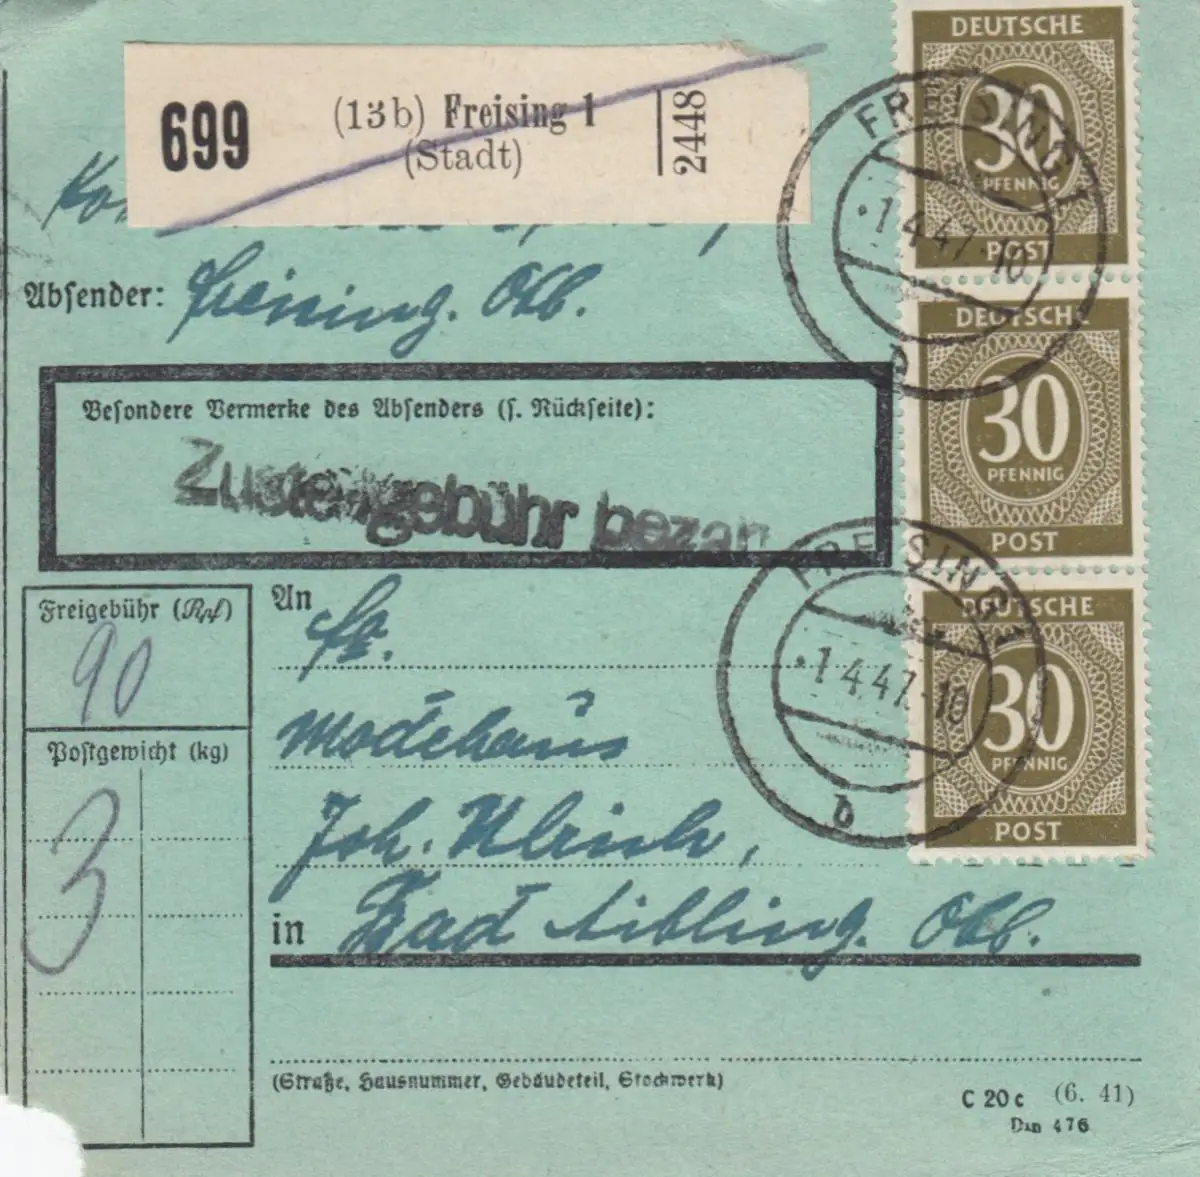 699
(13b) Freising 1
(Stadt)
2448
Absender: Freising. Obb.
Besondere Vermerke des Absenders (s. Rückseite):
Zustellgebühr
Freigebühr (Rpf)
90
Postgewicht (kg)
3
An Fa.
Modehaus
Joh. Ulrich,
in Bad Aibling. Obb.
(Straße, Hausnummer, Gebäudeteil, Stockwerk)
C 20 c (6. 41)
Din 476
DEUTSCHE
30
PFENNIG
POST
FREISING 1
1.4.47.-10
b
DEUTSCHE
30
PFENNIG
POST
FREISING 1
1.4.47.-10
b
DEUTSCHE
30
PFENNIG
POST